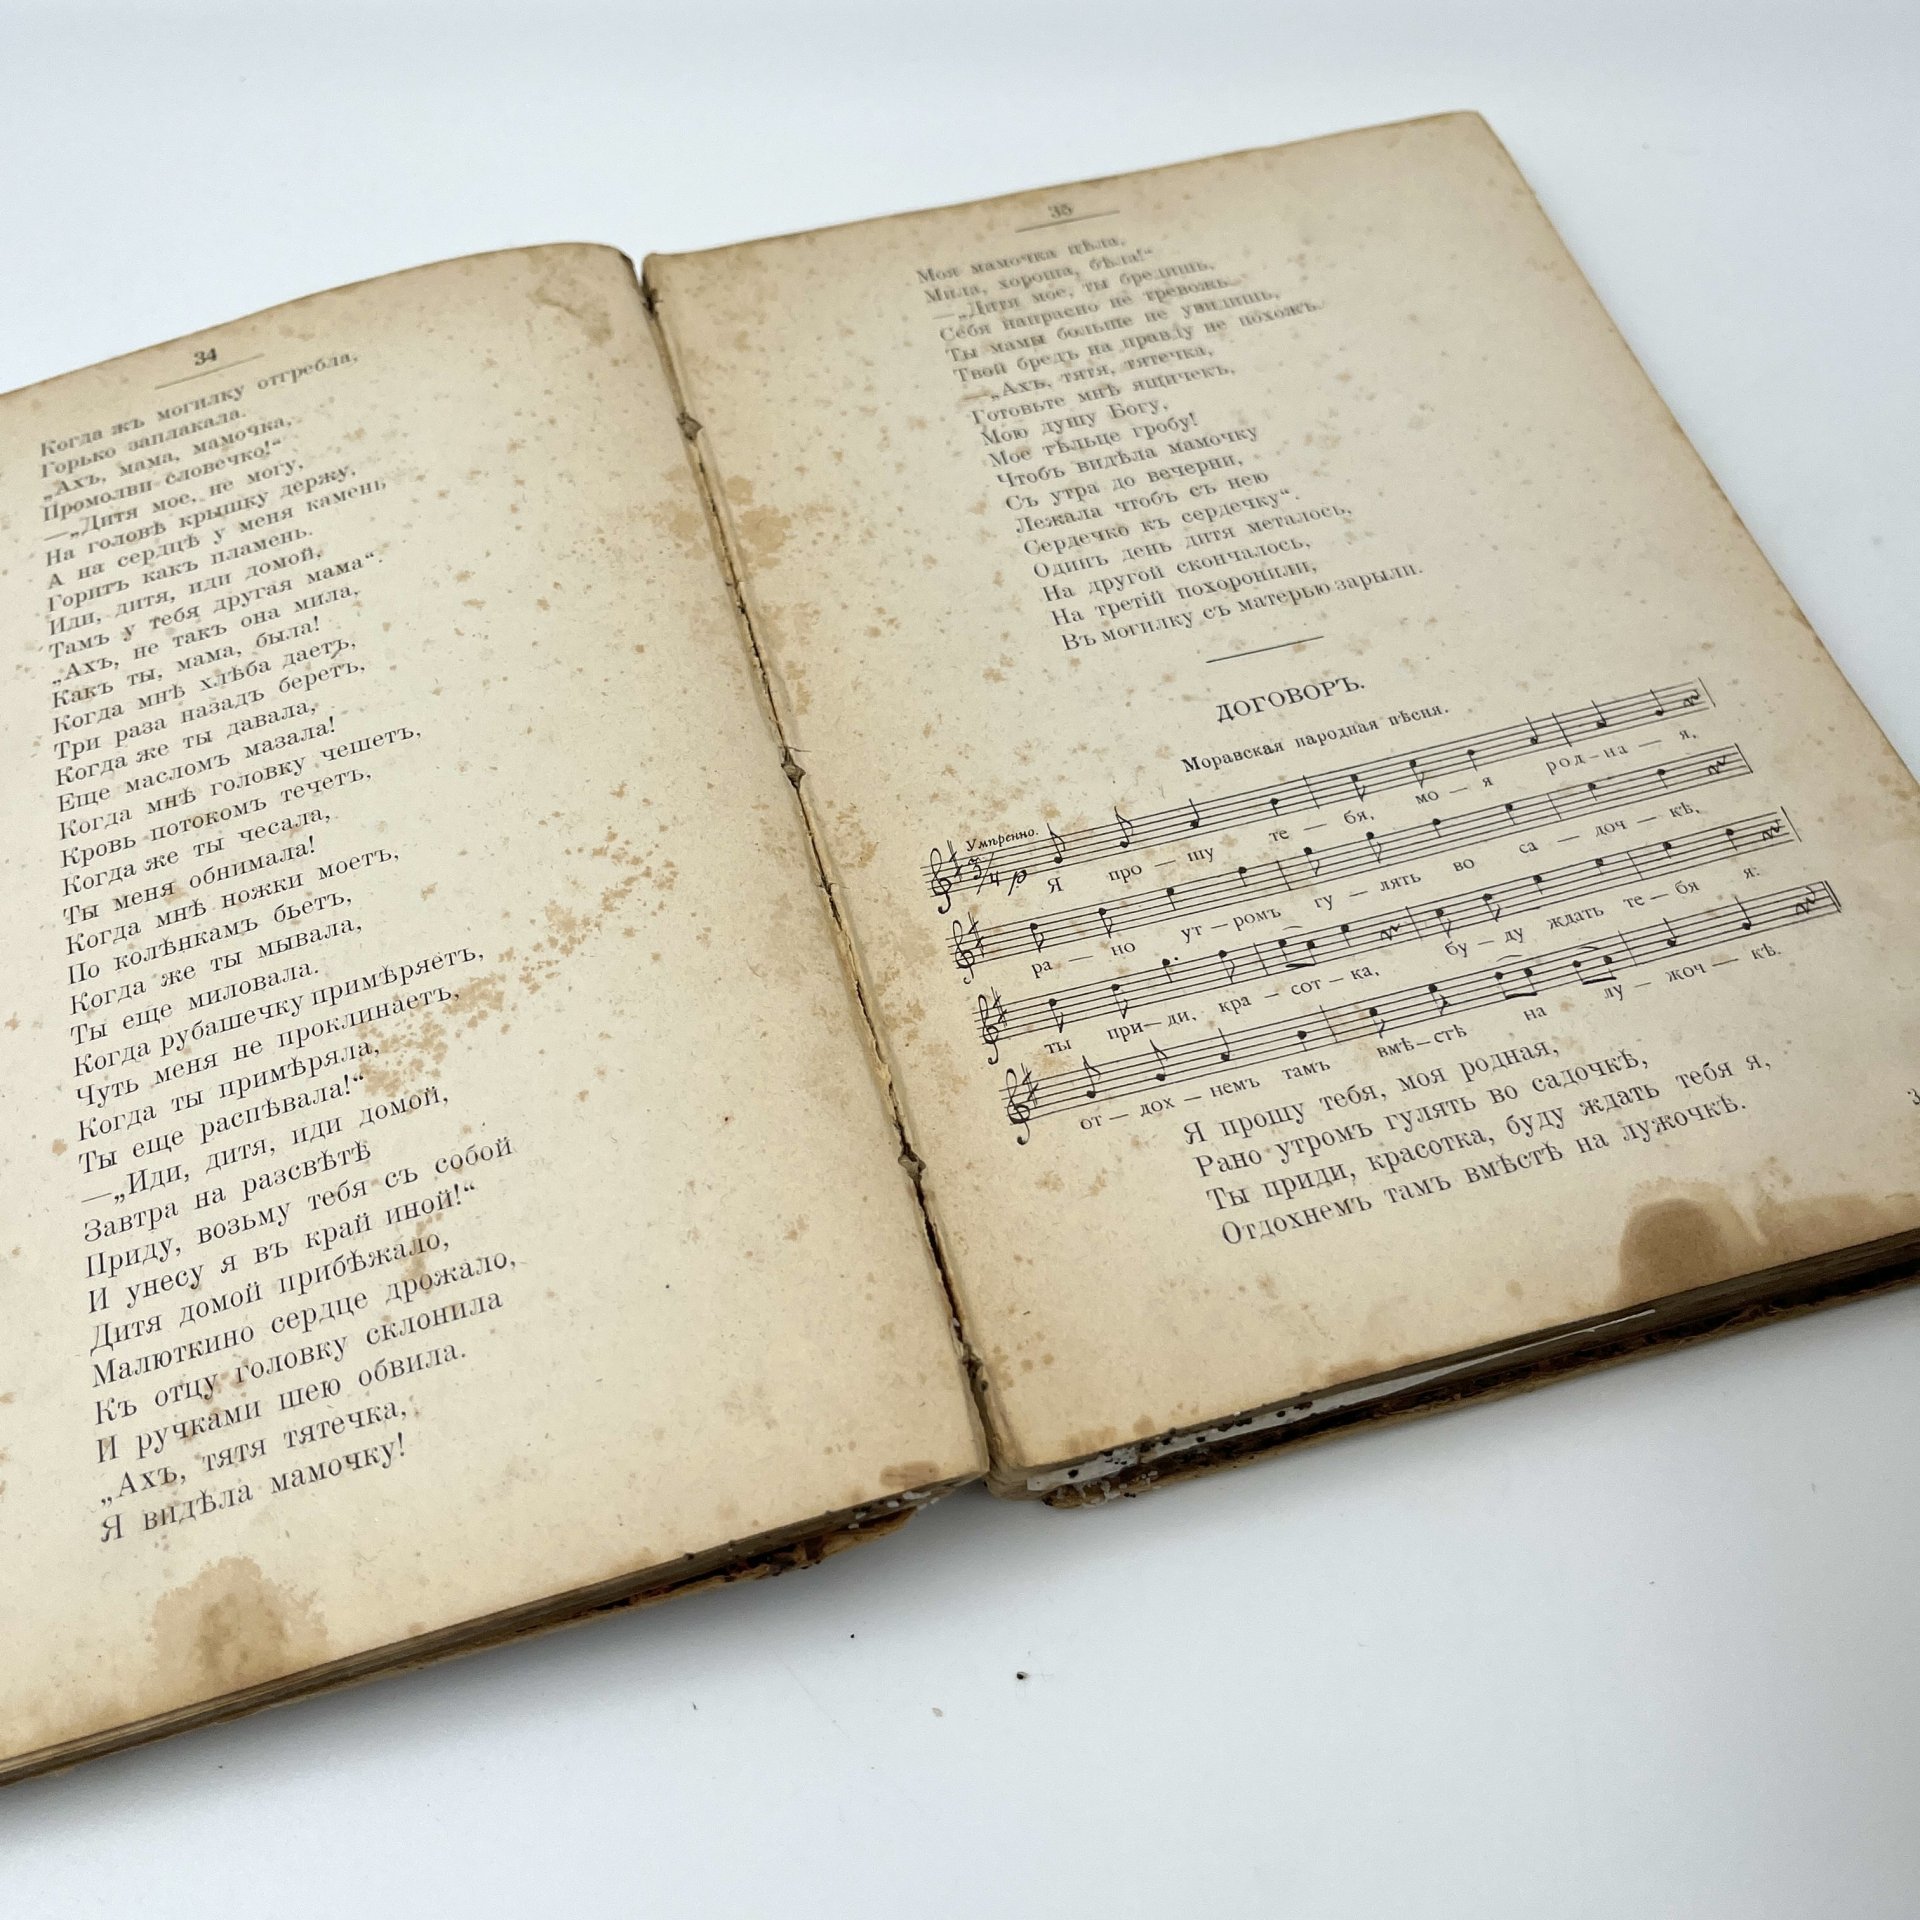 34
Когда жъ могилку отгребла,
Горько заплакала.
„Ахъ, мама, мамочка,
Промолви словечко!“
—„Дитя мое, не могу,
На головѣ крышку держу,
А на сердцѣ у меня камень
Горитъ какъ пламень.
Иди, дитя, иди домой,
Тамъ у тебя другая мама“.
„Ахъ, не такъ она мила,
Какъ ты, мама, была!
Когда мнѣ хлѣба даетъ,
Три раза назадъ беретъ,
Когда же ты давала,
Еще масломъ мазала!
Когда мнѣ головку чешетъ,
Кровь потокомъ течетъ,
Когда же ты чесала,
Ты меня обнимала!
Когда мнѣ ножки моетъ,
По колѣнкамъ бьетъ,
Когда же ты мывала,
Ты еще миловала.
Когда рубашечку примѣряетъ,
Чуть меня не проклинаетъ,
Когда ты примѣряла,
Ты еще распѣвала!“
—„Иди, дитя, иди домой,
Завтра на разсвѣтѣ
Приду, возьму тебя съ собой
И унесу я въ край иной!“
Дитя домой прибѣжало,
Малюткино сердце дрожало,
Къ отцу головку склонила
И ручками шею обвила.
„Ахъ, тятя тятечка,
Я видѣла мамочку!
35
Моя мамочка цѣла,
Мила, хороша, бѣла!“
—„Дитя мое, ты бредишь,
Себя напрасно не тревожь
Ты мамы больше не увидишь,
Твой бредъ на правду не похожъ.
—„Ахъ, тятя, тятечка,
Готовьте мнѣ ящичекъ,
Мою душу Богу,
Мое тѣльце гробу!
Чтобъ видѣла мамочку
Съ утра до вечерни,
Лежала чтобъ съ нею
Сердечко къ сердечку“.
Одинъ день дитя металось,
На другой скончалось,
На третій похоронили,
Въ могилку съ матерью зарыли.
ДОГОВОРЪ.
Моравская народная пѣсня.
Умѣренно.
3/4 p
Я про — шу те — бя, мо — я род — на — я,
ра — но ут — ромъ гу — лять во са — доч — кѣ,
ты при — ди, кра — сот — ка, бу — ду ждать те — бя я:
от — дох — немъ тамъ вмѣ — стѣ на лу — жоч — кѣ.
Я прошу тебя, моя родная,
Рано утромъ гулять во садочкѣ,
Ты приди, красотка, буду ждать тебя я,
Отдохнемъ тамъ вмѣстѣ на лужочкѣ.